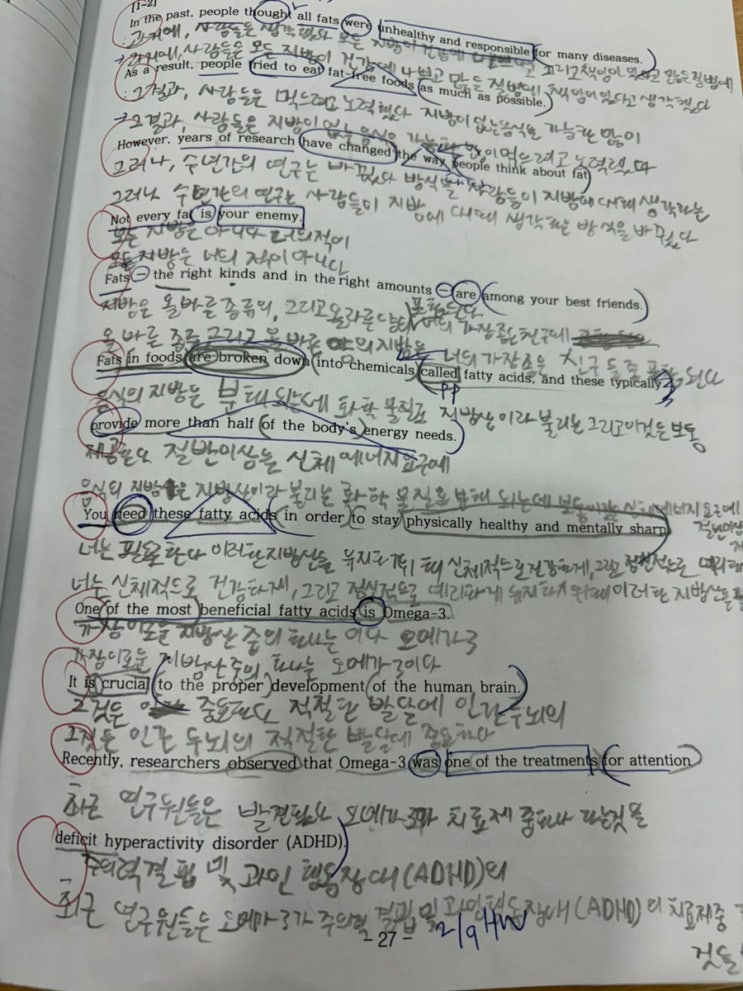 [1-2]
In the past, people thought all fats were unhealthy and responsible for many diseases.
과거에, 사람들은 생각했다 모든 지방이
과거에, 사람들은 모든 지방이 건강에 나쁘고 많은 질병에 책임이 있다고 생각했다
As a result, people tried to eat fat-free foods as much as possible.
그결과, 사람들은 먹으려고 노력했다 지방이 없는 음식을 가능한 많이
그결과, 사람들은 지방이 없는 음식을 가능한 많이 먹으려고 노력했다
However, years of research have changed the way people think about fat.
그러나, 수년간의 연구는 바꿨다 방식을 사람들이 지방에 대해 생각하는
그러나 수년간의 연구는 사람들이 지방에 대해 생각하는 방식을 바꿨다
Not every fat is your enemy.
모든 지방은 아니다 너의 적이
모든 지방은 너의 적이 아니다
Fats – the right kinds and in the right amounts – are among your best friends.
지방은 올바른 종류의, 그리고 올바른
올바른 종류 그리고 올바른 양의 지방은 너의 가장 좋은 친구들 중
Fats in foods are broken down into chemicals called fatty acids, and these typically
PP
음식의 지방은 분해 되는데 화학 물질로 지방산이라 불리는 그리고 이것은 보통
provide more than half of the body's energy needs.
제공한다 절반이상을 신체 에너지 요구에
음식의 지방은 지방산이라 불리는 화학 물질로 분해 되는데 보통 신체 에너지 요구에
You need these fatty acids in order to stay physically healthy and mentally sharp.
너는 필요한다 이러한 지방산을 유지하기 위해 신체적으로 건강하게, 그리고 정신적으로
너는 신체적으로 건강하게, 그리고 정신적으로 예리하게 유지하기 위해 이러한 지방산을
One of the most beneficial fatty acids is Omega-3.
가장 이로운 지방산 중의 하나는 이다 오메가3
가장 이로운 지방산 중의 하나는 오메가 3이다
It is crucial to the proper development of the human brain.
그것은 중요한다 적절한 발달에 인간 두뇌의
그것은 인간 두뇌의 적절한 발달에 중요하다
Recently, researchers observed that Omega-3 was one of the treatments for attention
최근 연구원들은 발견했다 오메가3가 치료제 중 하나 라는것을
deficit hyperactivity disorder (ADHD).
주의력 결핍 및 과잉 행동장애(ADHD)의
최근 연구원들은 오메가3가 주의력 결핍 및 과잉행동장애(ADHD)의 치료제중
것을
- 27 - 2/9 HW